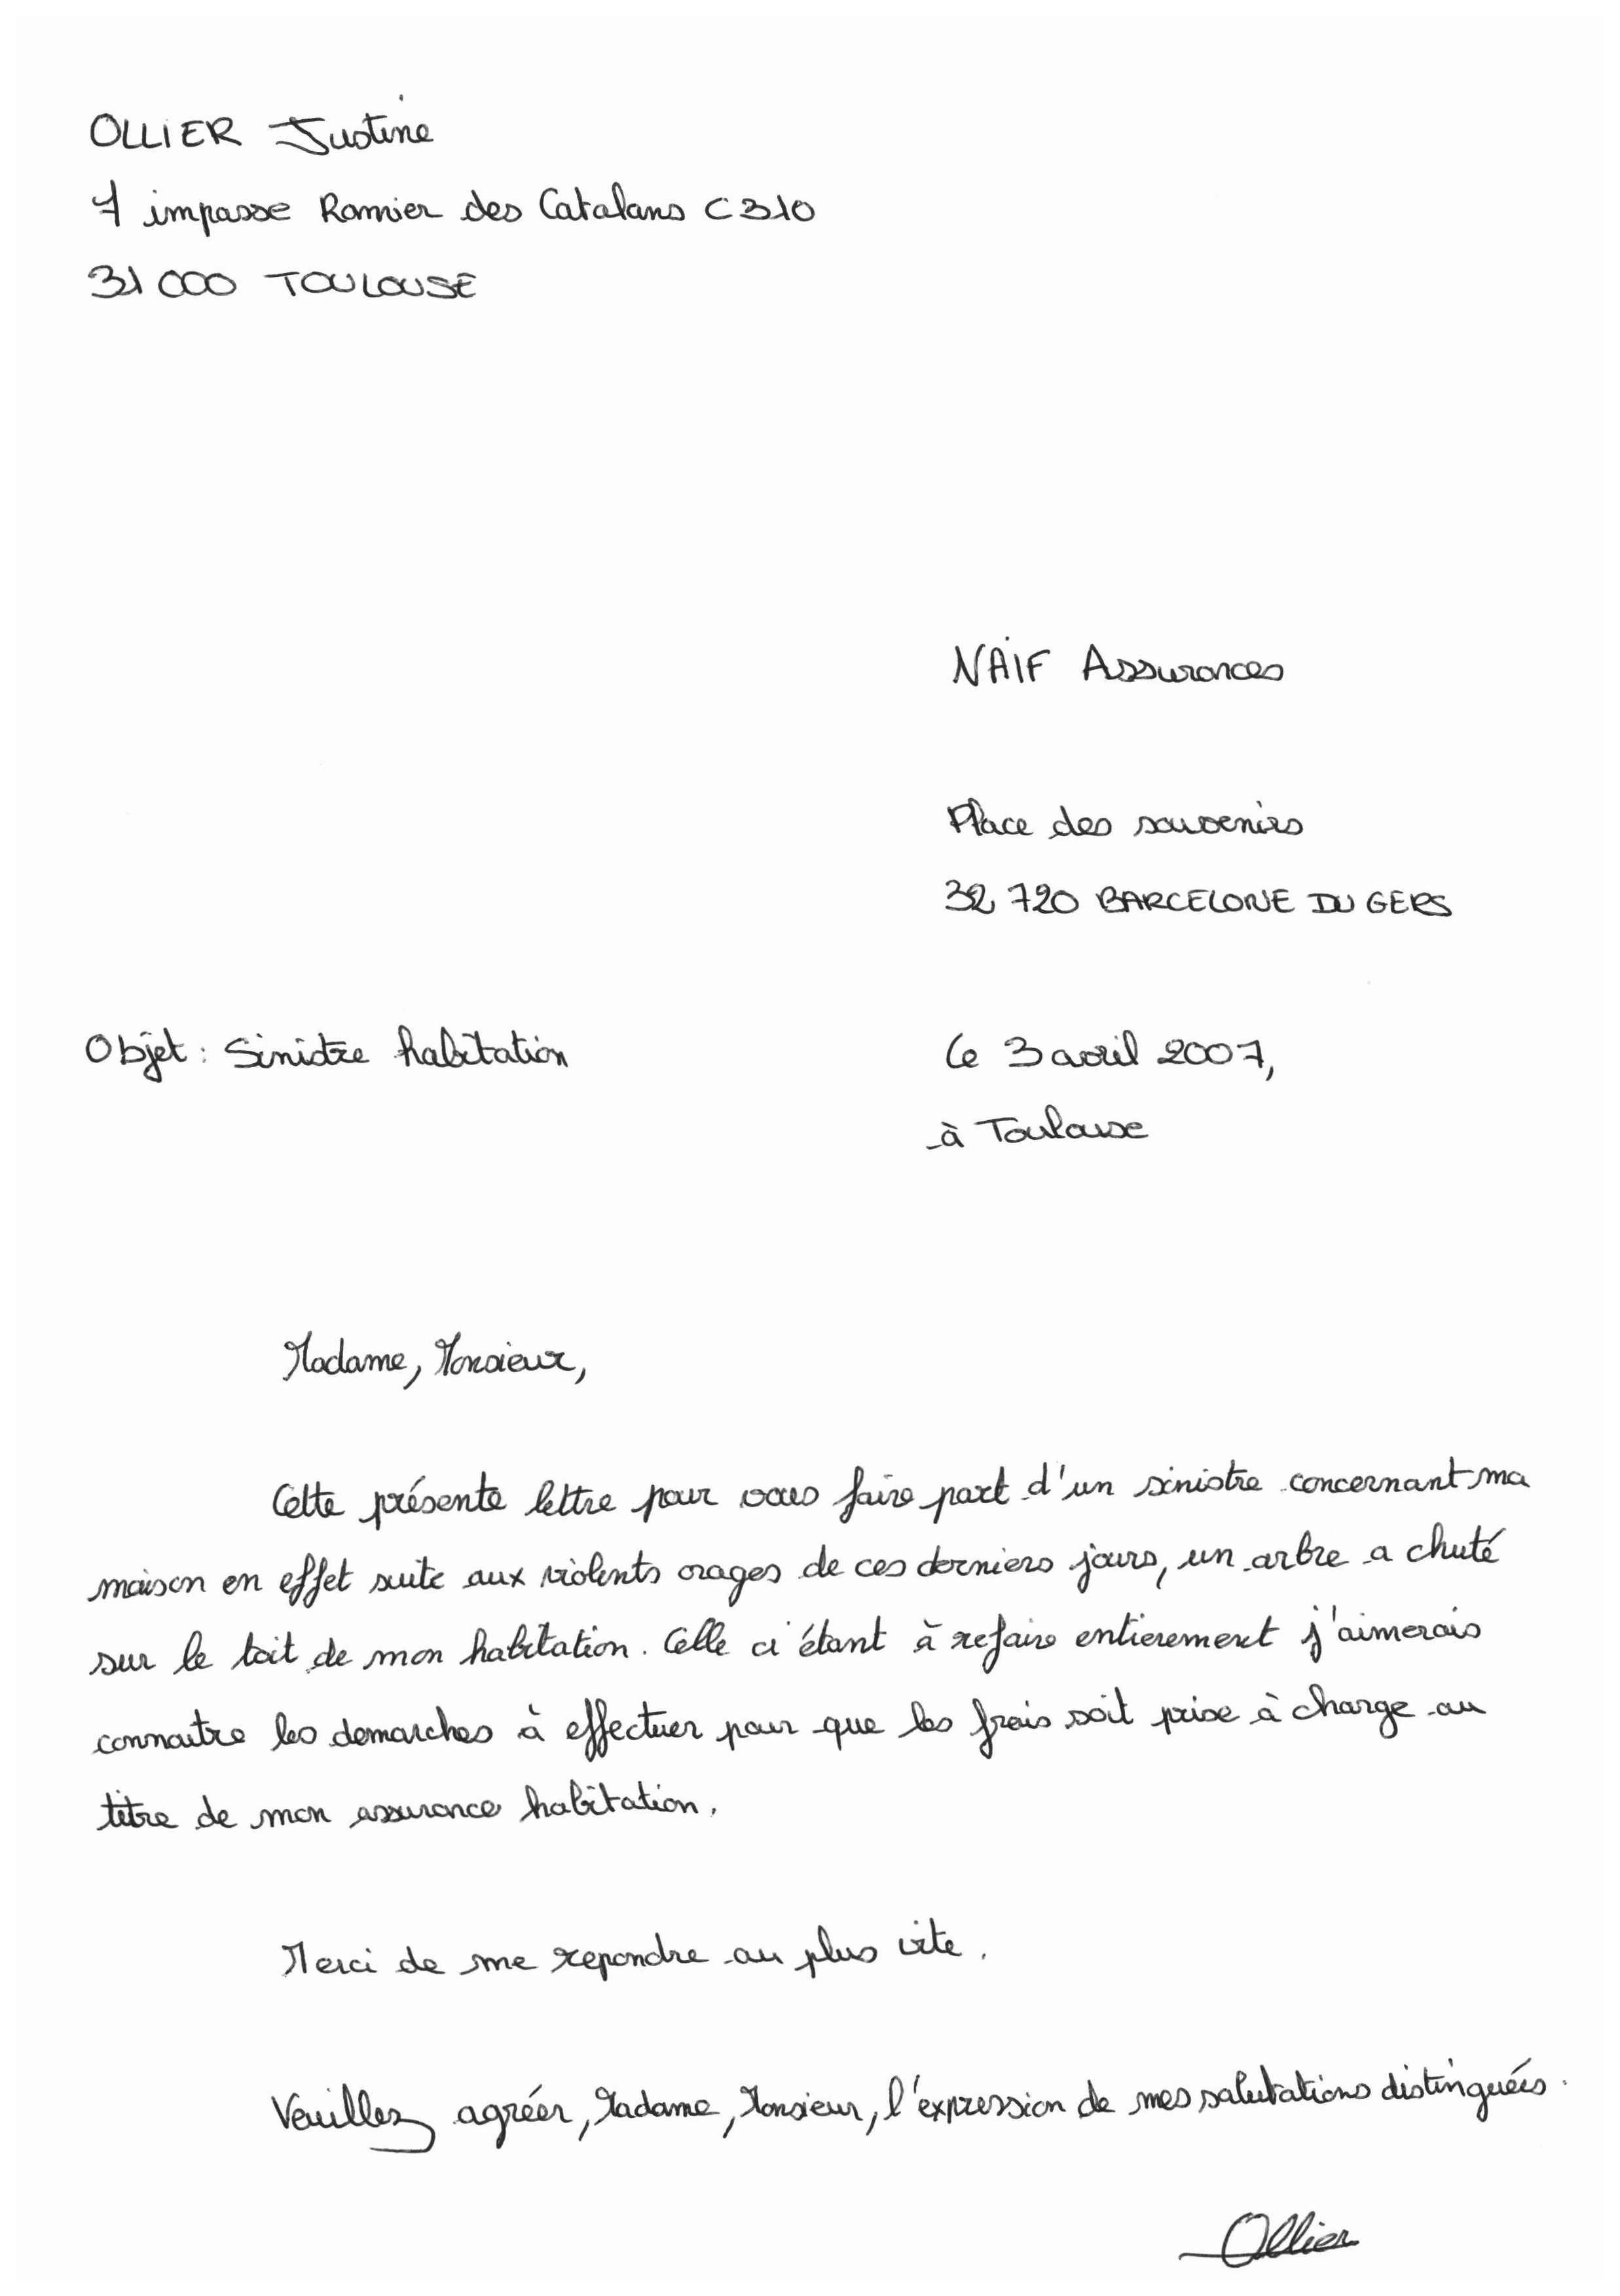 OLLIER Justine
7 impasse Ramier des Catalans C310
31 000 TOULOUSE
NAIF Assurances
Place des souvenirs
32 720 BARCELONE DU GERS
Objet : Sinistre habitation
Le 3 avril 2007,
à Toulouse
Madame, Monsieur,
Cette présente lettre pour vous faire part d'un sinistre concernant ma
maison en effet suite aux violents orages de ces derniers jours, un arbre a chuté
sur le toit de mon habitation. Celle ci étant à refaire entierement j'aimerais
connaitre les demarches à effectuer pour que les frais soit prise à charge au
titre de mon assurance habitation.
Merci de me repondre au plus vite.
Veuillez agréer, Madame, Monsieur, l'expression de mes salutations distinguées.
Ollier